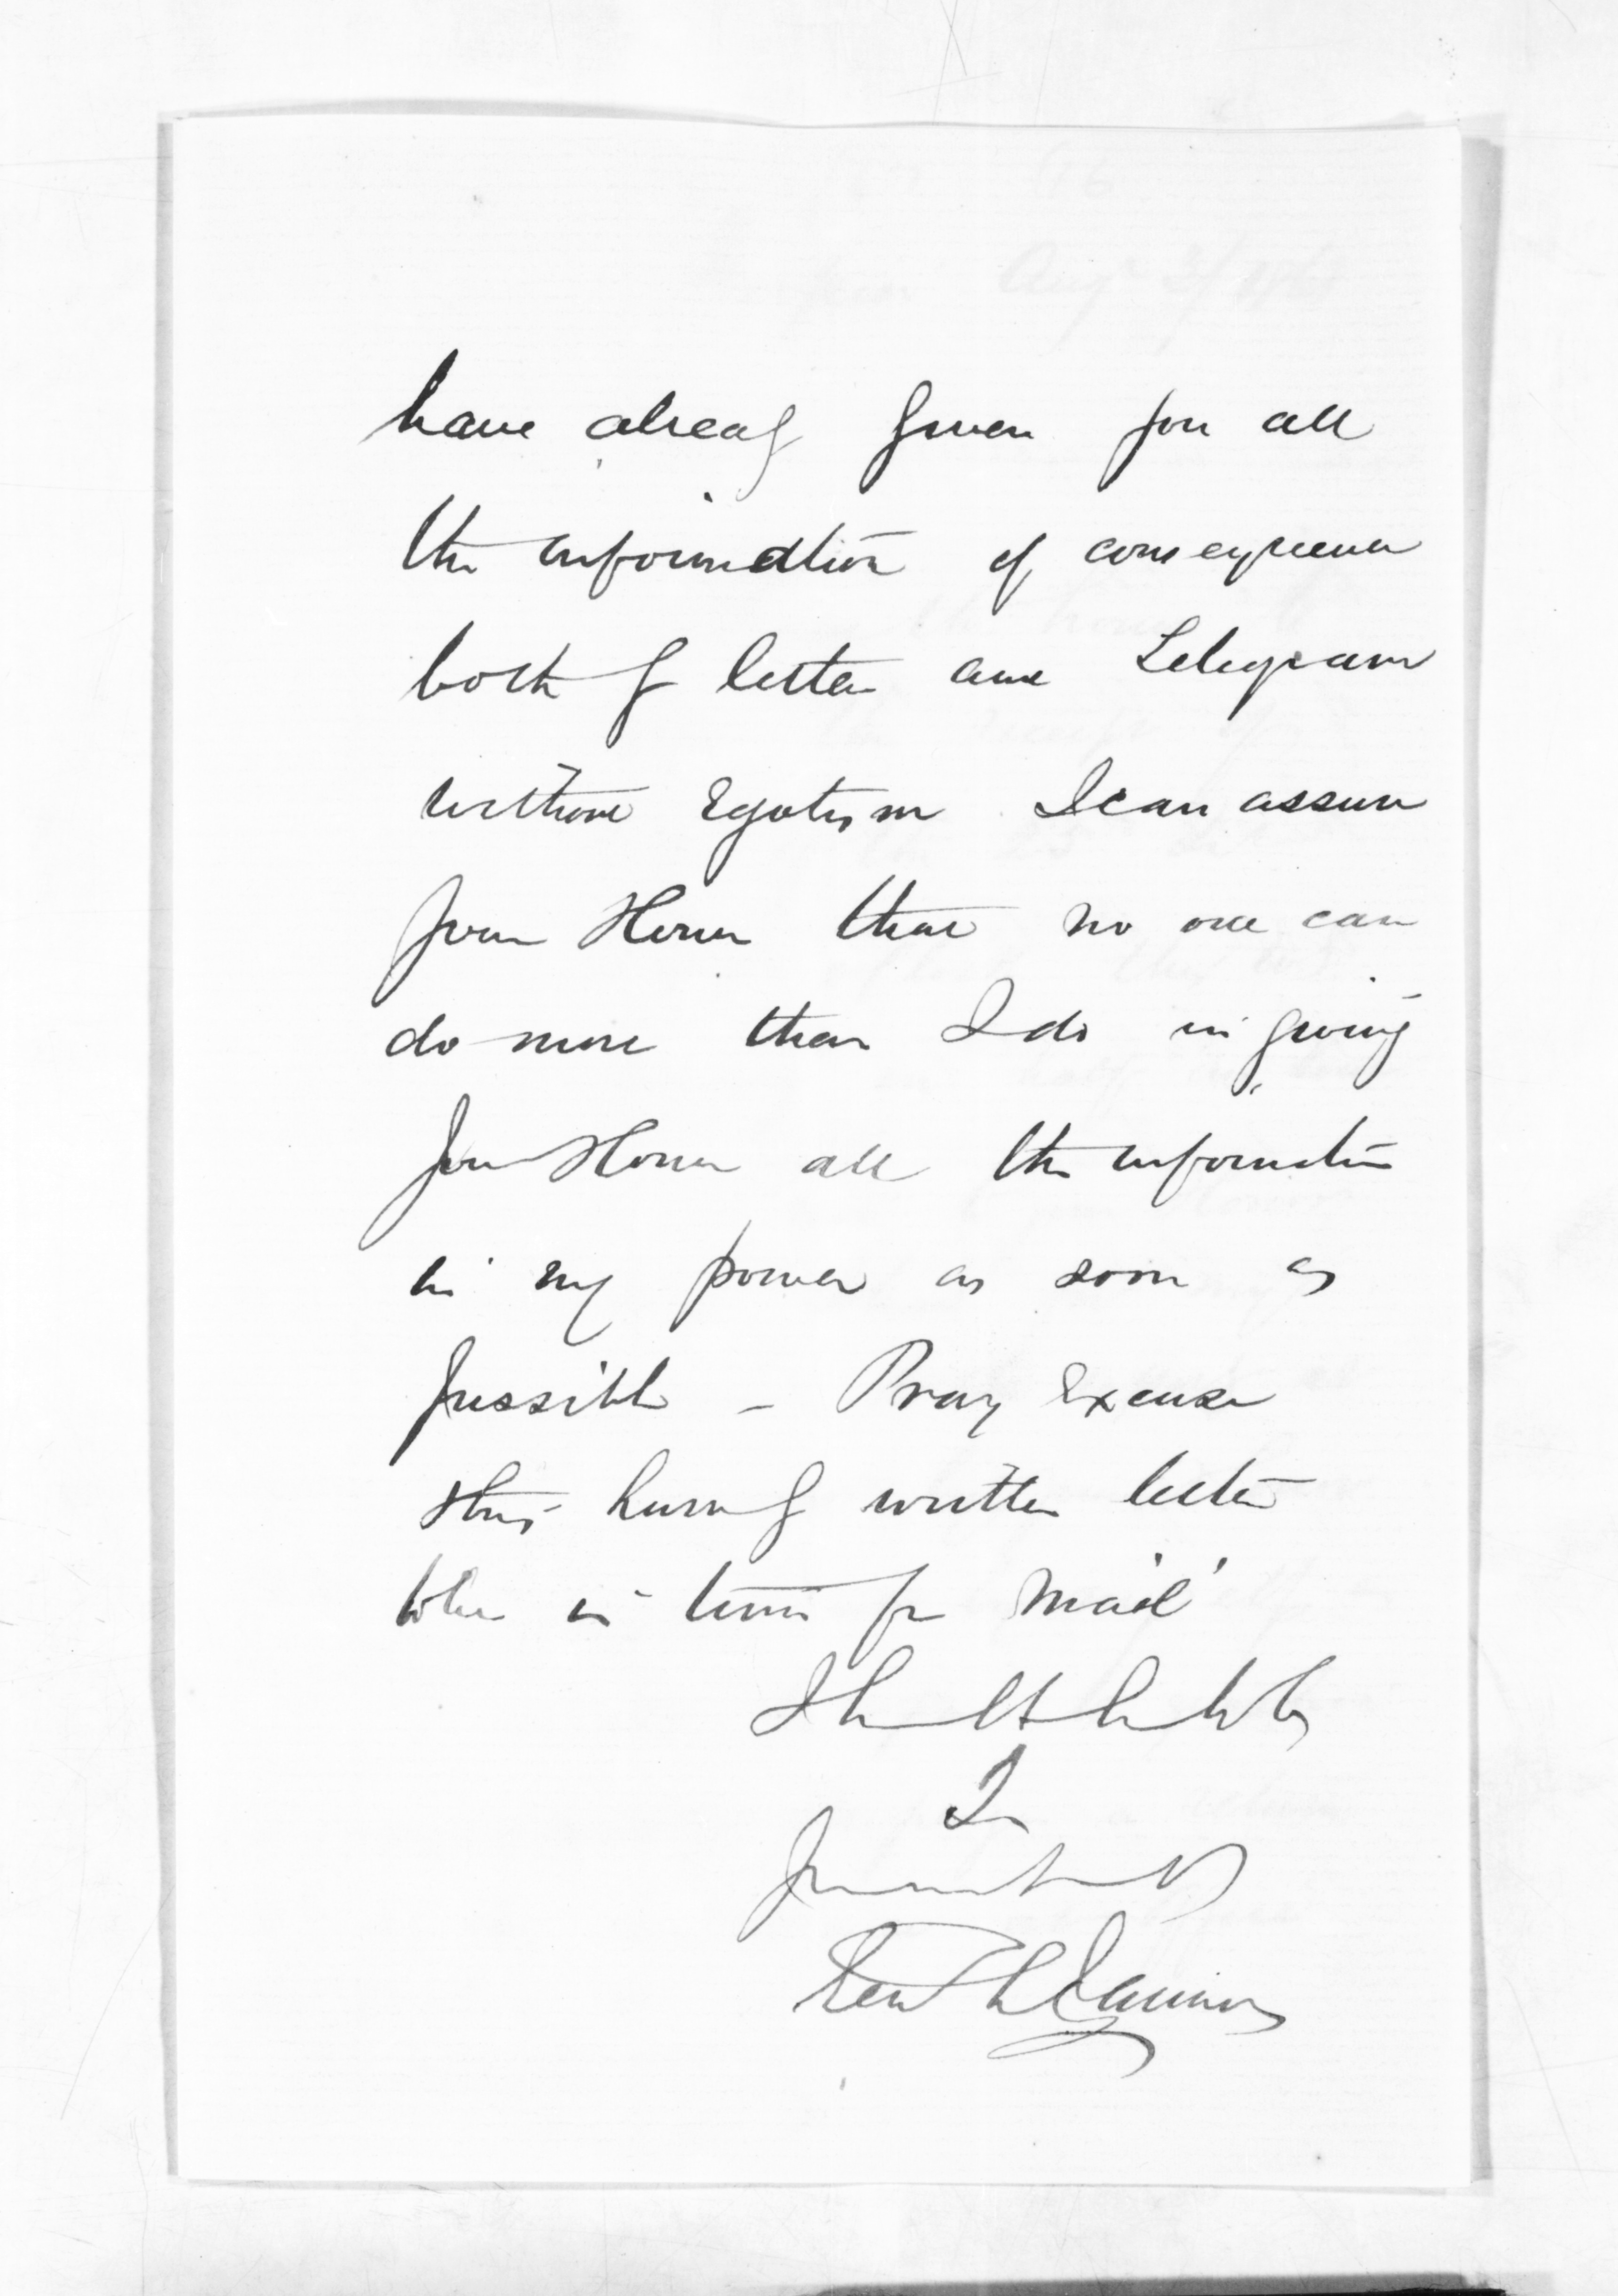 have already given you all
the information of consequence
both by letter and Telegram
without Egotism I can assure
your Honor that no one can
do more than I do in giving
your Honor all the information
in my power as soon as
possible - Pray Excuse
this hurridly written letter
to be in time for Mail
I